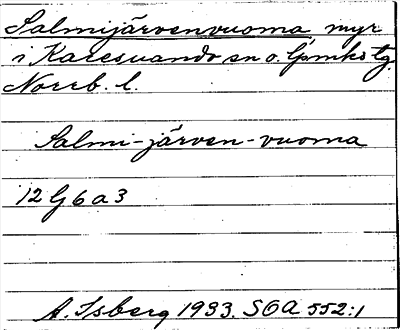 Salmijärvenvuoma myr
i Karesuando sn o. Lpmks tg
Norrb. l.
Salmi-järven-vuoma
12 G 6 a 3
A. Isberg 1933. SOA 552:1